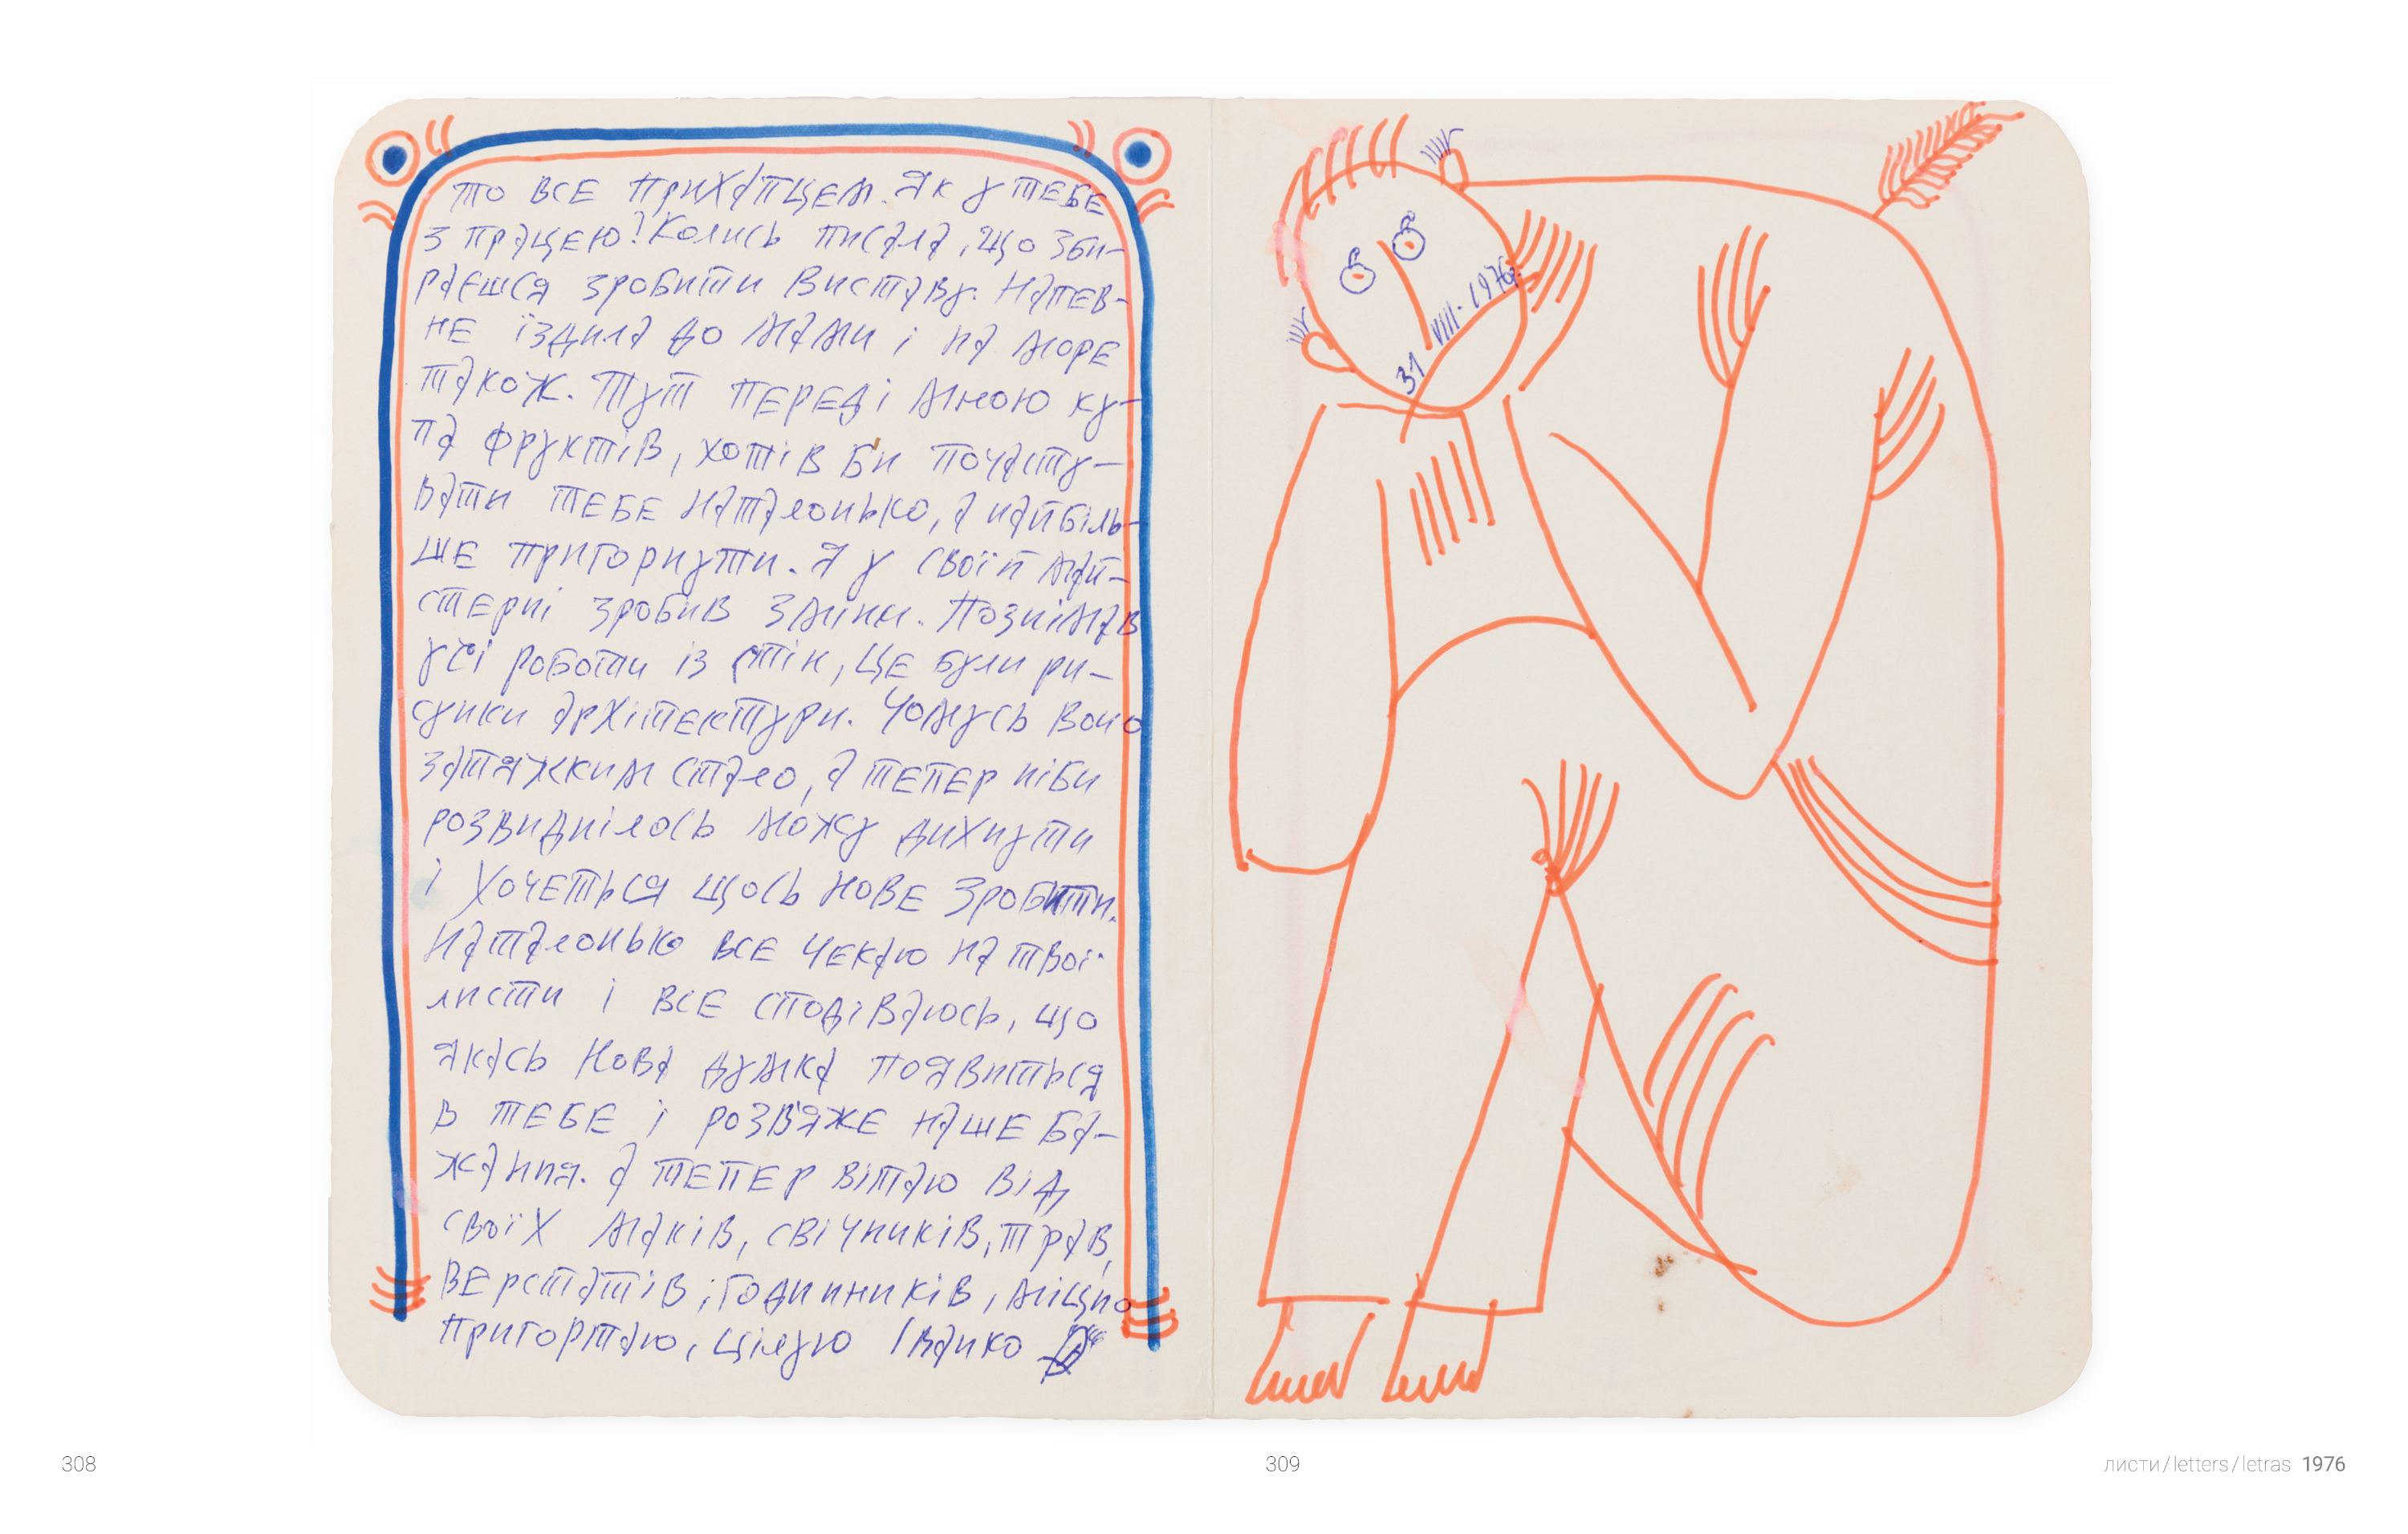 то все прихапцем. Як у тебе
з працею? Колись писала, що зби-
раєшся зробити виставу. Напев-
не їздила до мами і на море
також. Тут переді мною ку-
па фруктів, хотів би почасту-
вати тебе Наталонько, а найбіль-
ше пригорнути. Я у своїй май-
стерні зробив зміни. Познімав
усі роботи із стін, це були ри-
сунки архітектури. Чомусь воно
затяжким стало, а тепер ніби
розвиднілось можу дихнути
і хочеться щось нове зробити.
Наталонько все чекаю на твої
листи і все сподіваюсь, що
якась нова думка появиться
в тебе і розв'яже наше ба-
жання. а тепер вітаю від
своїх маків, свічників, трав,
верстатів, годинників, міцно
пригортаю, цілую Іванко
31 VIII. 1976
308
309
листи / letters / letras 1976